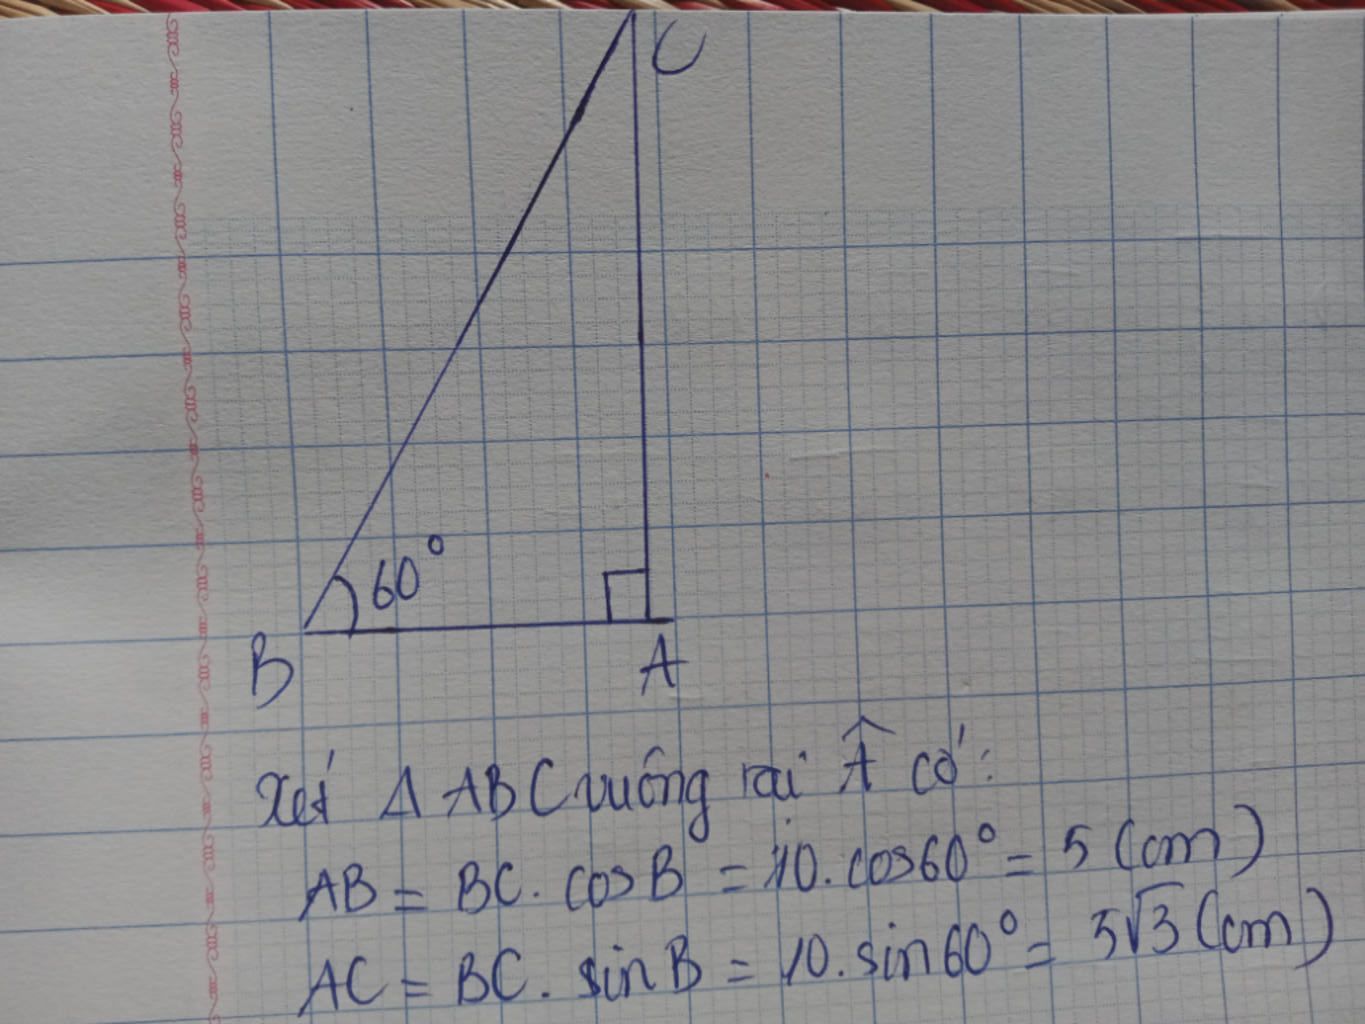 C
60°
B
A
Xét Δ ABC vuông tại Â có:
AB = BC. cosB = 10. cos60° = 5 (cm)
AC = BC. sinB = 10. sin60° = 5√3 (cm)